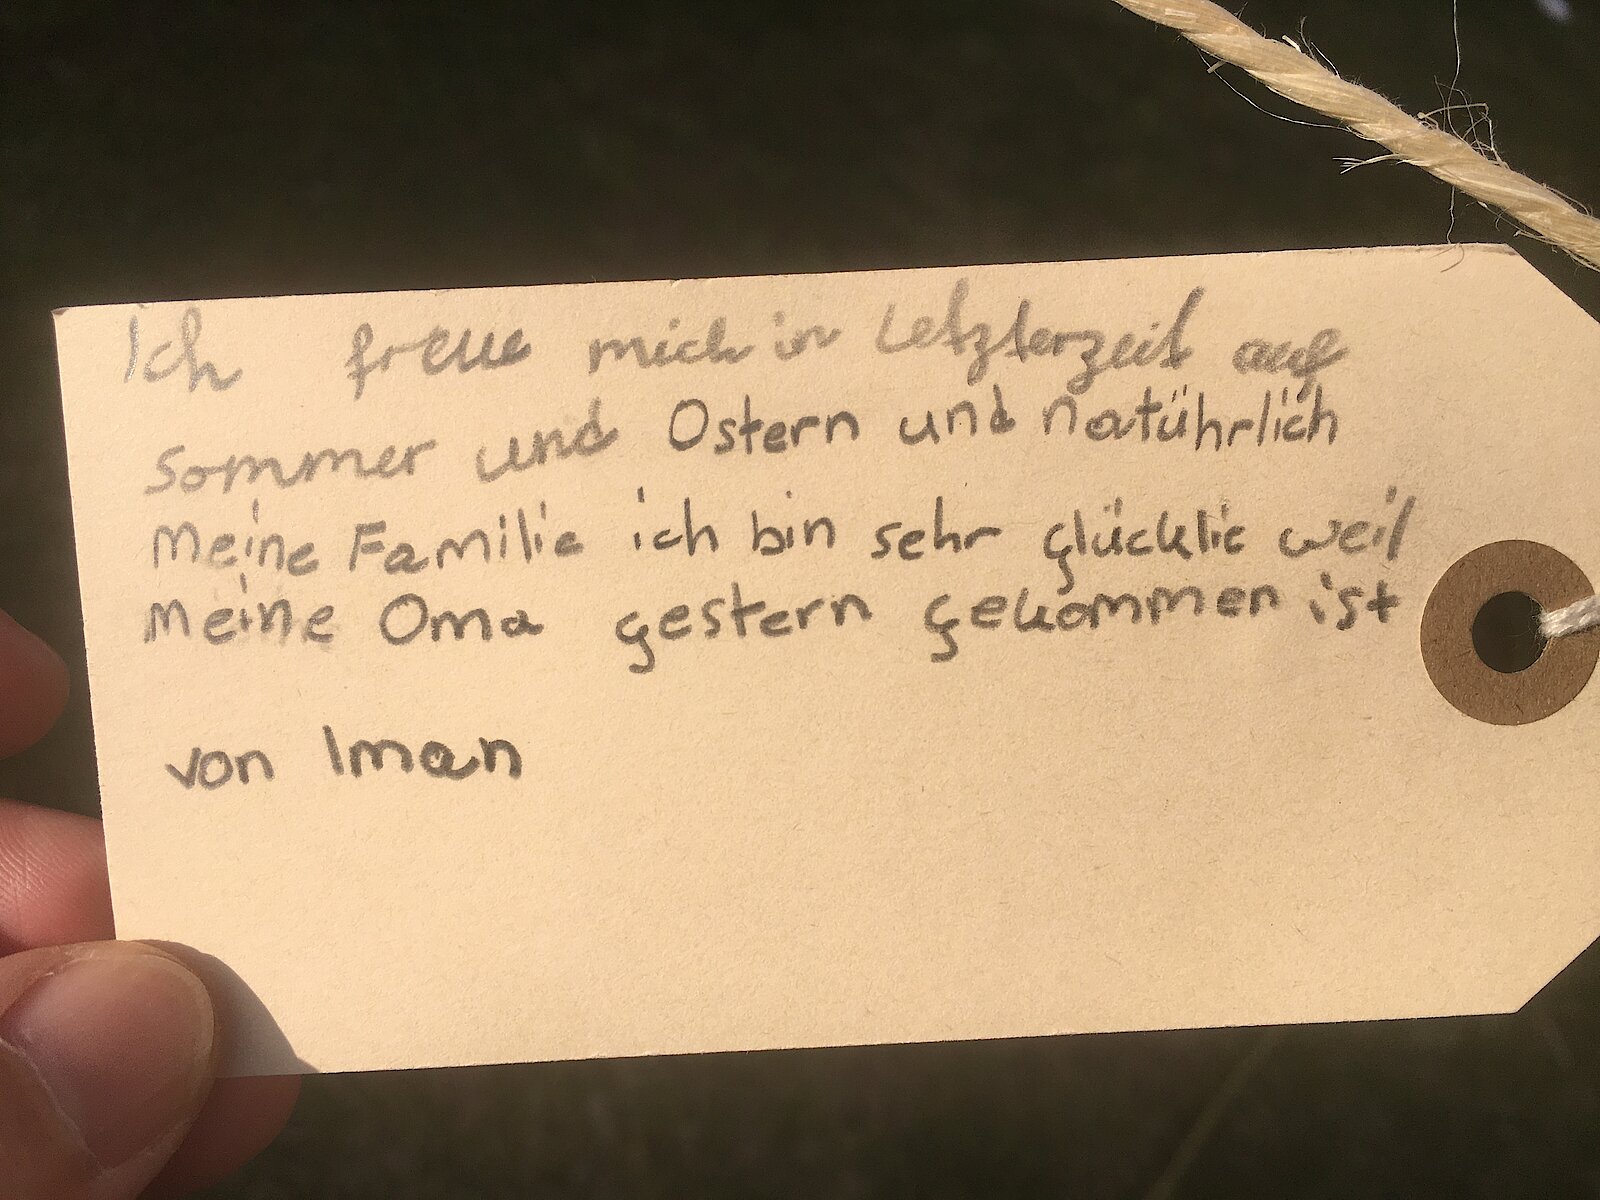 Ich freue mich in letzterzeit auf
Sommer und Ostern und natührlich
Meine Familie ich bin sehr glücklic weil
Meine Oma gestern gekommen ist
von Iman